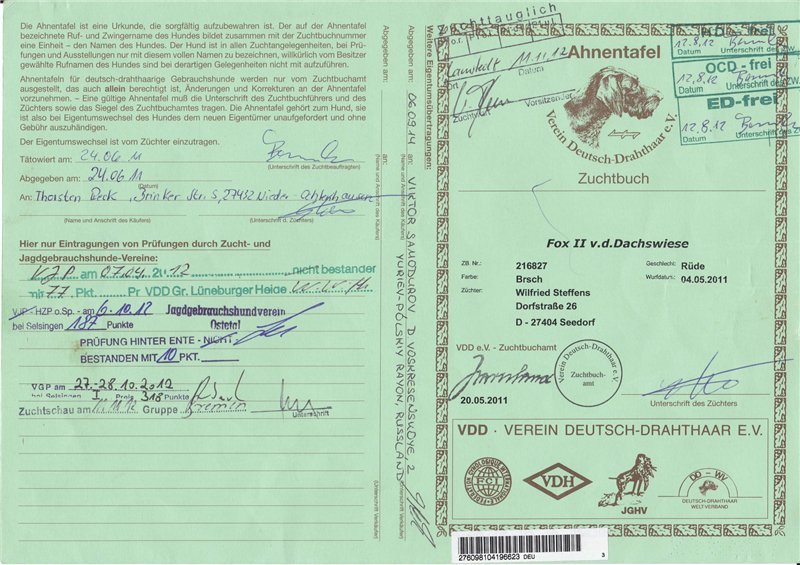 Die Ahnentafel ist eine Urkunde, die sorgfältig aufzubewahren ist. Der auf der Ahnentafel
bezeichnete Ruf- und Zwingername des Hundes bildet zusammen mit der Zuchtbuchnummer
eine Einheit – den Namen des Hundes. Der Hund ist in allen Zuchtangelegenheiten, bei Prü-
fungen und Ausstellungen nur mit diesem vollen Namen zu bezeichnen, willkürlich vom Besitzer
gewählte Rufnamen des Hundes sind bei derartigen Gelegenheiten nicht mit aufzuführen.
Ahnentafeln für deutsch-drahthaarige Gebrauchshunde werden nur vom Zuchtbuchamt
ausgestellt, das auch allein berechtigt ist, Änderungen und Korrekturen an der Ahnentafel
vorzunehmen. – Eine gültige Ahnentafel muß die Unterschrift des Zuchtbuchführers und des
Züchters sowie das Siegel des Zuchtbuchamtes tragen. Die Ahnentafel gehört zum Hund, sie
ist also bei Eigentumswechsel des Hundes dem neuen Eigentümer unaufgefordert und ohne
Gebühr auszuhändigen.
Der Eigentumswechsel ist vom Züchter einzutragen.
Tätowiert am: 24.06.11
(Unterschrift des Zuchtbeauftragten)
Abgegeben am: 24.06.11
(Datum)
An: Thorsten Beck, Brinker Str. 5, 27432
(Name und Anschrift des Käufers) (Unterschrift d. Züchters)
Hier nur Eintragungen von Prüfungen durch Zucht- und
Jagdgebrauchshunde-Vereine:
VJP am 07.04.2012 nicht bestanden
mit 77 Pkt. Pr VDD Gr. Lüneburger Heide
VJP - HZP o.Sp. - am 6.10.12 Jagdgebrauchshundverein
bei Selsingen 187 Punkte Ostetal
PRÜFUNG HINTER ENTE - NICHT
BESTANDEN MIT 10 PKT.
VGP am 27.-28.10.2012
bei Selsingen I. Preis 318 Punkte
Zuchtschau am 11.11.12 Gruppe Bremen
Unterschrift
Weitere Eigentumsübertragungen:
Abgegeben am: 06.09.14 an: VIKTOR SAMODUROV D. VOSKRESENSKOYE, 2
YURIEV-POLSKIY RAYON, RUSSLAND
(Name und Anschrift des Käufers)
(Unterschrift Verkäufer)
Abgegeben am: an:
(Name und Anschrift des Käufers)
(Unterschrift Verkäufer)
Zuchttauglich
11.11.12
Ort Datum
Zuchtw Vorsitzender
HD - frei
12.8.12
Datum Unterschrift des ZW
OCD - frei
12.8.12
Datum Unterschrift des ZW
ED-frei
12.8.12
Datum Unterschrift des
Ahnentafel
Verein Deutsch-Drahthaar e.V.
Zuchtbuch
Fox II v.d.Dachswiese
ZB. Nr.: 216827 Geschlecht: Rüde
Farbe: Brsch Wurfdatum: 04.05.2011
Züchter: Wilfried Steffens
Dorfstraße 26
D - 27404 Seedorf
VDD e.V. - Zuchtbuchamt
Verein Deutsch-Drahthaar e.V.
Zuchtbuch-
amt
20.05.2011
Unterschrift des Züchters
VDD · VEREIN DEUTSCH-DRAHTHAAR E.V.
FEDERATION CYNOLOGIQUE INTERNATIONALE
FCI
VDH
JGHV
DD - WV
DEUTSCH-DRAHTHAAR
WELTVERBAND
276098104196623 DEU 3